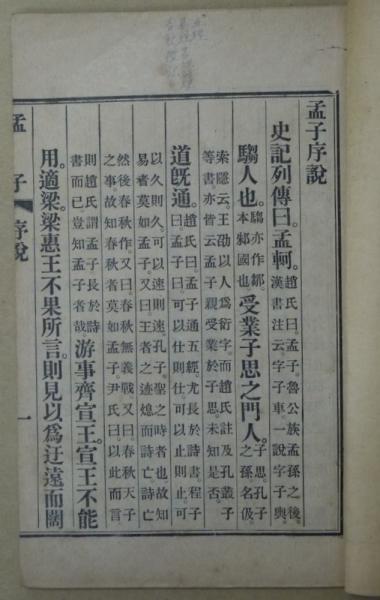 孟子序說
史記列傳曰。孟軻。
趙氏曰。孟子。魯公族孟孫之後。
漢書注云。字子車。一說字子輿
騶人也。
騶亦作鄒。
本邾國也。
受業子思之門人。
子思。孔子
之孫名伋。
索隱云。王劭以人爲衍字。而趙氏註及孔叢子
等書亦皆云。孟子親受業於子思。未知是否。
道旣通。
趙氏曰。孟子通五經。尤長於詩書。程子
曰。孟子曰。可以仕則仕。可以止則止。可
以久則久。可以速則速。孔子聖之時者也。故知
易者莫如孟子。又曰。王者之迹熄而詩亡。詩亡
然後春秋作。又曰。春秋無義戰。又曰。春秋天子
之事。故知春秋者莫如孟子。尹氏曰。以此而言。
則趙氏謂孟子長於詩
書而已。豈知孟子者哉
游事齊宣王。宣王不能
用。適梁。梁惠王不果所言。則見以爲迂遠而闊
孟子 序說 一